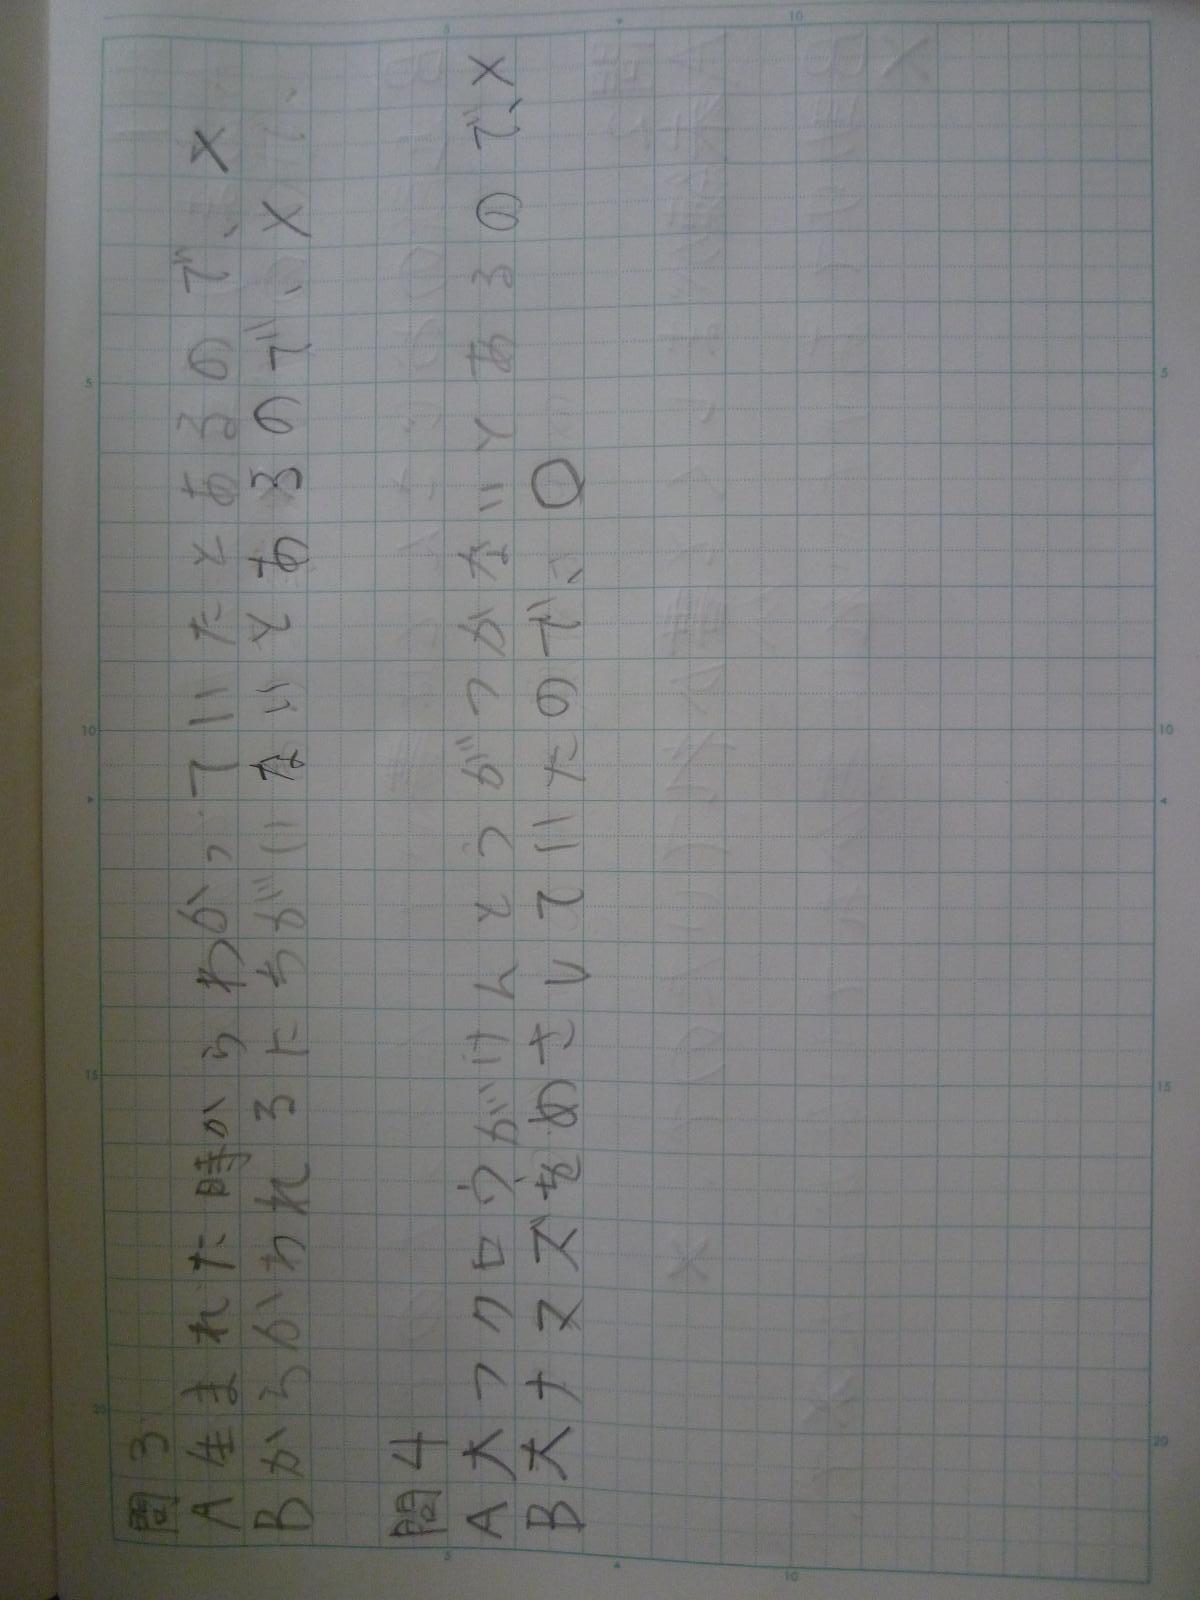 問3
A生まれた時からわかっていたとあるので、×
Bからかわれるにちがいないとあるので、×
問4
A大フクロウがけんとうがつかないとあるので、×
B大ナマズをめさしていたので、○